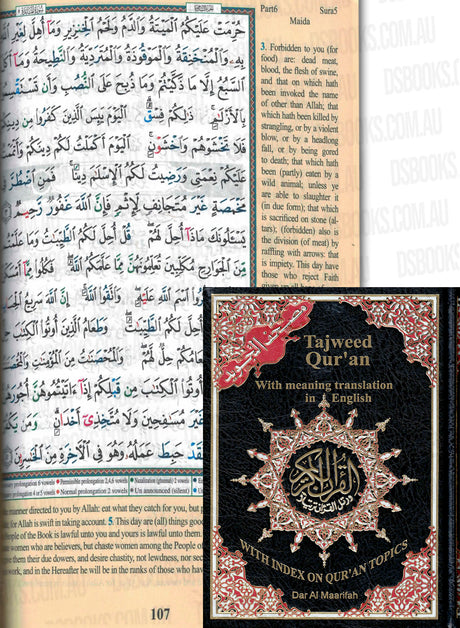 Part6 Sura5
Maida
حُرِّمَتْ عَلَيْكُمُ ٱلْمَيْتَةُ وَٱلدَّمُ وَلَحْمُ ٱلْخِنزِيرِ وَمَآ أُهِلَّ لِغَيْرِ
بِهِۦ وَٱلْمُنْخَنِقَةُ وَٱلْمَوْقُوذَةُ وَٱلْمُتَرَدِّيَةُ وَٱلنَّطِيحَةُ وَمَآ
ٱلسَّبُعُ إِلَّا مَا ذَكَّيْتُمْ وَمَا ذُبِحَ عَلَى ٱلنُّصُبِ وَأَن تَسْتَقْسِمُوا۟
بِٱلْأَزْلَٰمِ ۚ ذَٰلِكُمْ فِسْقٌ ۗ ٱلْيَوْمَ يَئِسَ ٱلَّذِينَ كَفَرُوا۟ مِن
فَلَا تَخْشَوْهُمْ وَٱخْشَوْنِ ۚ ٱلْيَوْمَ أَكْمَلْتُ لَكُمْ دِينَكُمْ وَأَتْمَمْتُ
عَلَيْكُمْ نِعْمَتِى وَرَضِيتُ لَكُمُ ٱلْإِسْلَٰمَ دِينًا ۚ فَمَنِ ٱضْطُرَّ
مَخْمَصَةٍ غَيْرَ مُتَجَانِفٍ لِّإِثْمٍ ۙ فَإِنَّ ٱللَّهَ غَفُورٌ رَّحِيمٌ
يَسْـَٔلُونَكَ مَاذَآ أُحِلَّ لَهُمْ ۖ قُلْ أُحِلَّ لَكُمُ ٱلطَّيِّبَٰتُ وَمَا
مِّنَ ٱلْجَوَارِحِ مُكَلِّبِينَ تُعَلِّمُونَهُنَّ مِمَّا عَلَّمَكُمُ ٱللَّهُ ۖ فَكُلُوا۟ مِمَّآ
وَٱذْكُرُوا۟ ٱسْمَ ٱللَّهِ عَلَيْهِ ۖ وَٱتَّقُوا۟ ٱللَّهَ ۚ إِنَّ ٱللَّهَ سَرِيعُ
أُحِلَّ لَكُمُ ٱلطَّيِّبَٰتُ ۖ وَطَعَامُ ٱلَّذِينَ أُوتُوا۟ ٱلْكِتَٰبَ
وَطَعَامُكُمْ حِلٌّ لَّهُمْ ۖ وَٱلْمُحْصَنَٰتُ مِنَ ٱلْمُؤْمِنَٰتِ
أُوتُوا۟ ٱلْكِتَٰبَ مِن قَبْلِكُمْ إِذَآ ءَاتَيْتُمُوهُنَّ أُجُورَهُنَّ
غَيْرَ مُسَٰفِحِينَ وَلَا مُتَّخِذِىٓ أَخْدَانٍ ۗ وَمَن يَكْفُرْ
فَقَدْ حَبِطَ عَمَلُهُۥ وَهُوَ فِى ٱلْـَٔاخِرَةِ مِنَ ٱلْخَٰسِرِينَ
3. Forbidden to you (for
food) are: dead meat,
blood, the flesh of swine,
and that on which hath
been invoked the name
of other than Allah; that
which hath been killed by
strangling, or by a violent
blow, or by a headlong
fall, or by being gored
to death; that which hath
been (partly) eaten by a
wild animal; unless ye
are able to slaughter it
(in due form); that which
is sacrificed on stone (al-
tars); (forbidden) also is
the division (of meat) by
raffling with arrows: that
is impiety. This day have
those who reject Faith
given up all
prolongation 6 vowels Permissible prolongation 2,4,6 vowels Nazalization (ghunnah) 2 vowels
prolongation 4 or 5 vowels Normal prolongation 2 vowels Un announced (silent)
manner directed to you by Allah: eat what they catch for you, but
for Allah is swift in taking account. 5. This day are (all) things good
People of the Book is lawful unto you and yours is lawful unto them.
women who are believers, but chaste women among the People of
them their due dowers, and desire chastity, not lewdness, nor
work, and in the Hereafter he will be in the ranks of those who have
107
مصحف التجويد
Tajweed
Qur'an
With meaning translation
in English
القرآن الكريم
ورتل القرآن ترتيلا
WITH INDEX ON QUR'AN TOPICS
Dar Al Maarifah
DSBOOKS.COM.AU